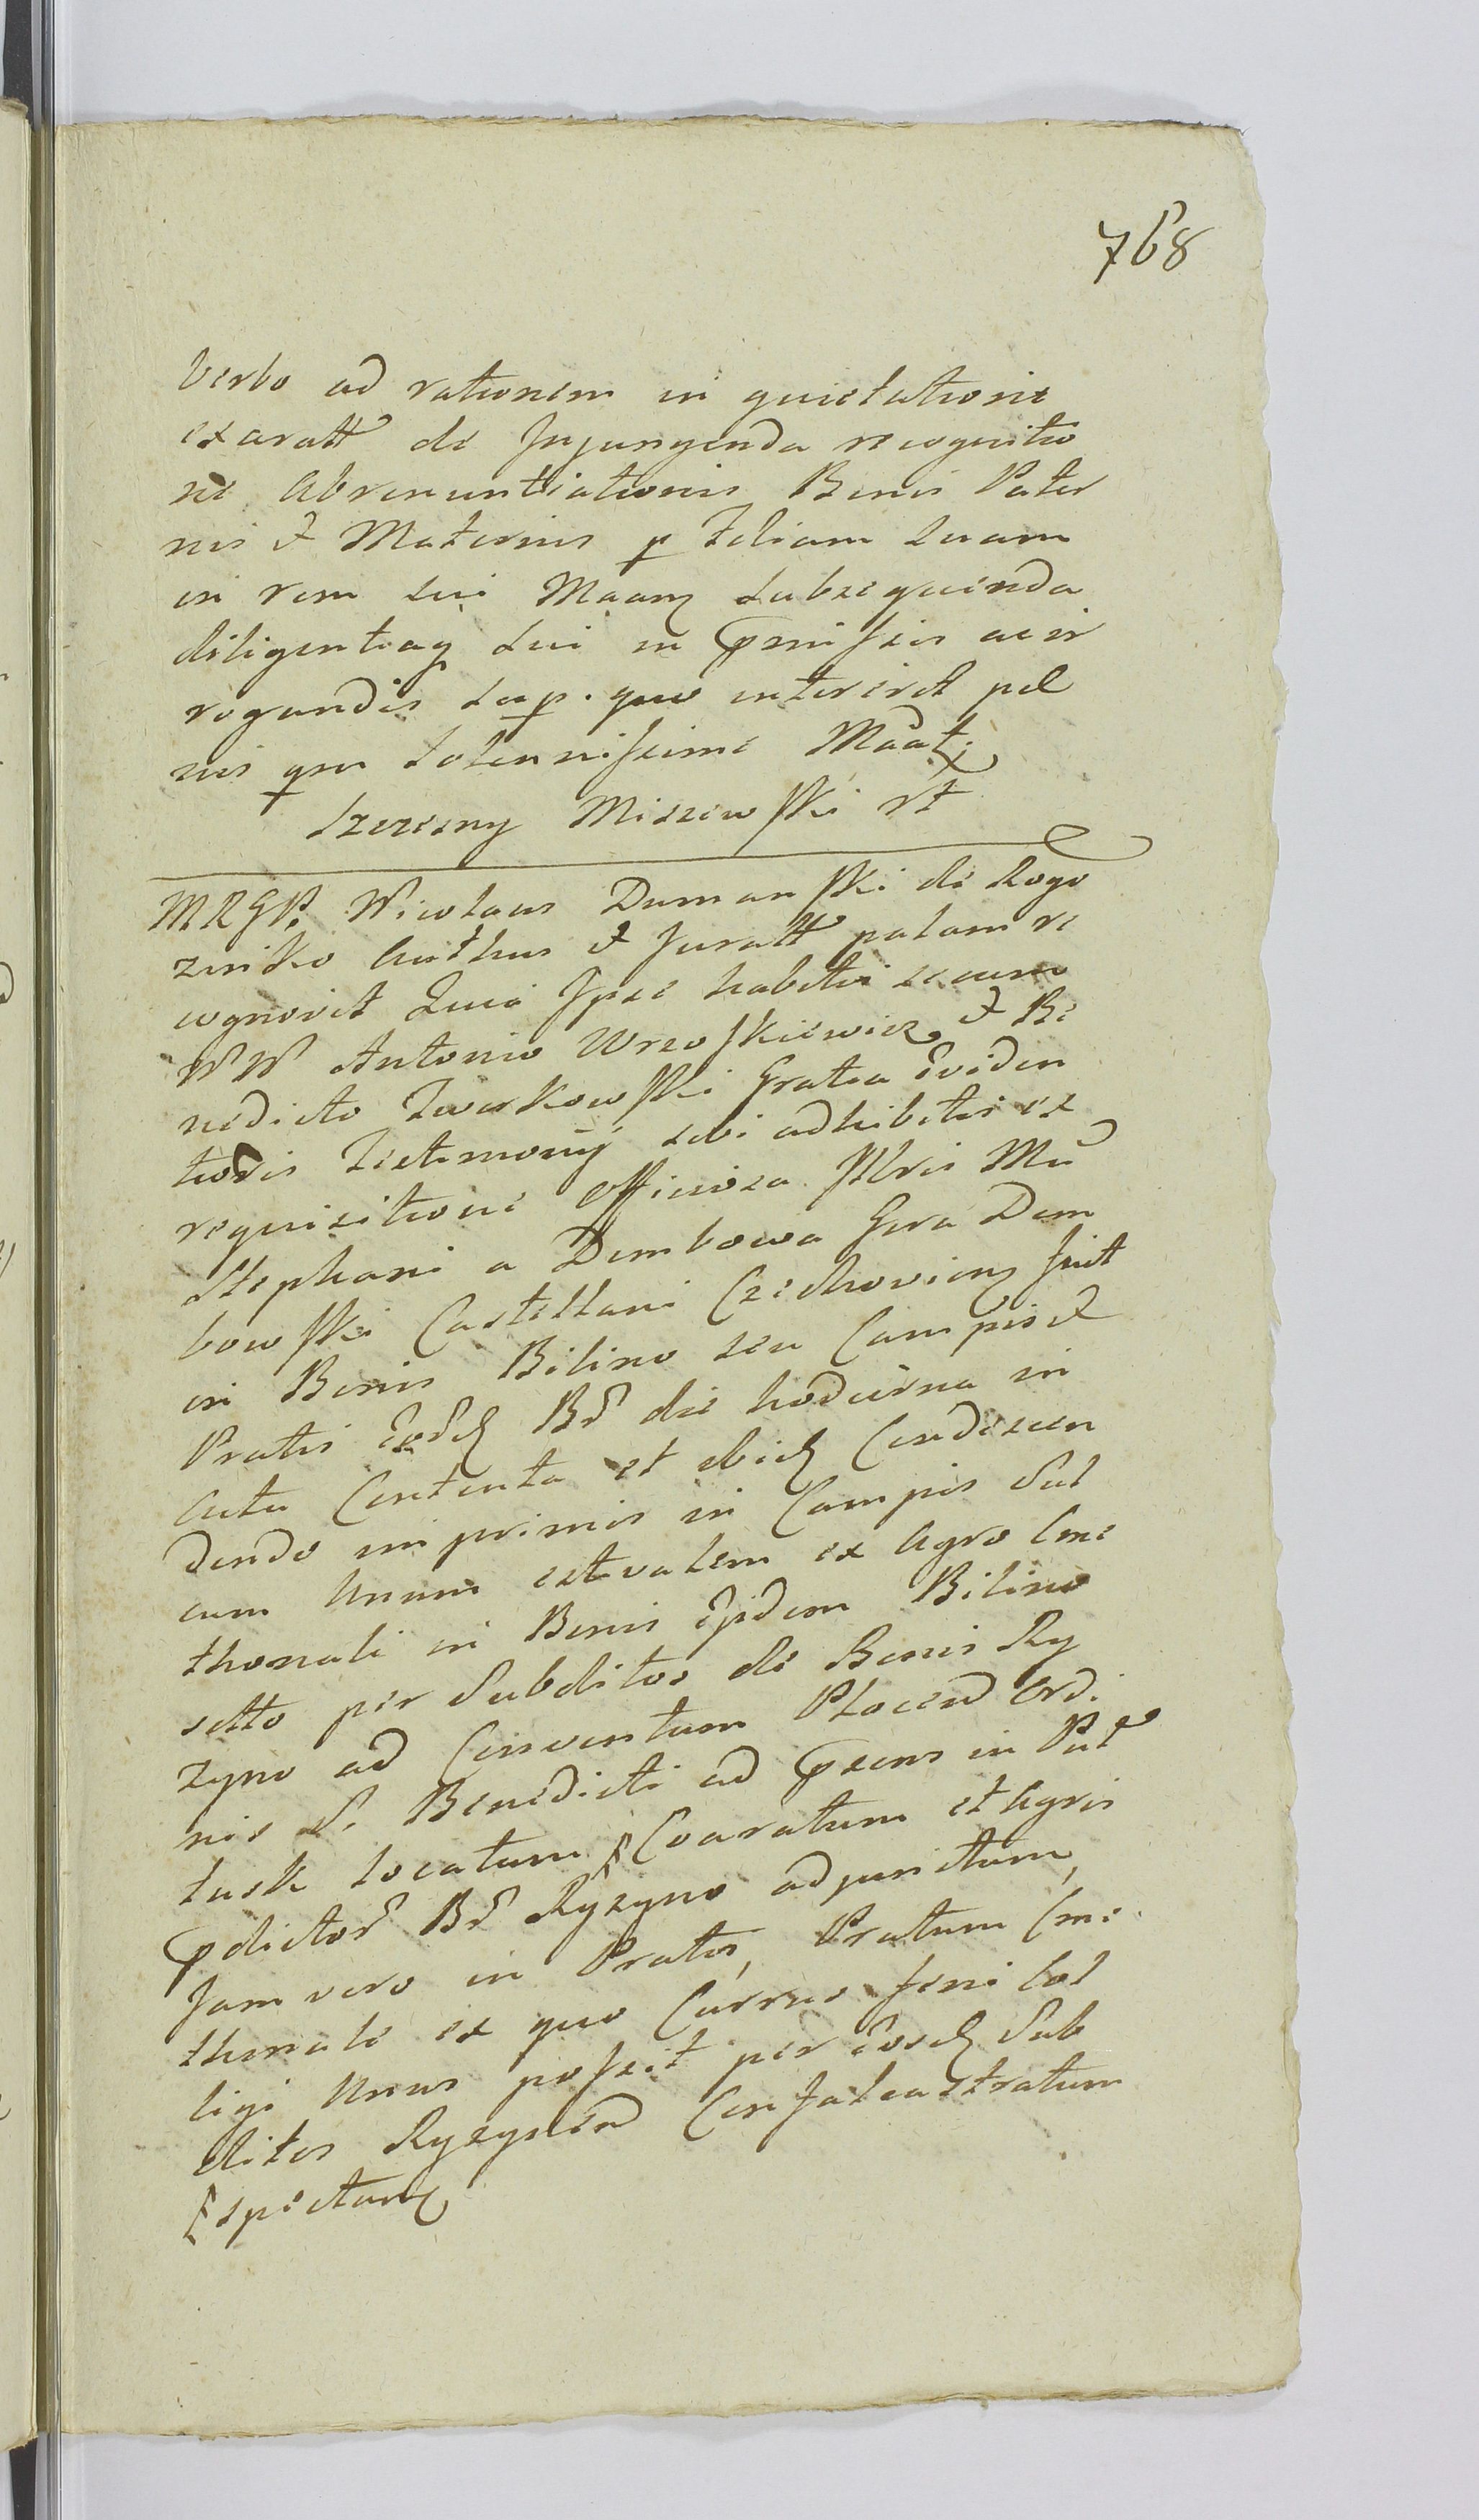 768
verbo ad rationem in quietatione
exaratt de Injungenda recognitio
ne Abrenuntiationis Bonis Pater
nis et Maternis p filiam Suam
in rem sui Maanz subsequenda
diligentiaq sui in pmissis acir
rogandis sup. quo intererit ple
nis qm solennissime Maat.
Szczesny Miszewski rt
MRGP. Nicolaus Dumanski de Rogo
zinko Authus et Juratt palam re
cognovit Quia Ipse habitis secum
NN Antonio Wrzoskiewicz et Be
nedicto Zwarkowski Gratia Eviden
tioris Testimonÿ sibi adhibitis ex
requisitione Officiosa Illris Mci
Stephani a Dembowa Gura Dem
bowski Castellani Czechovienz fuit
in Bonis Bilino seu Campis et
Pratis Eord Br die hodierna in
Actu Contenta et ibid Condescen
dendo imprimis in Campis Sul
cum Unum estivalem ex Agro Cme
thonali in Bonis Ejsdem Bilino
setto per Subditos de Bonis Ry
zyno ad Conventum Plocen Ordi
nis S. Benedicti ad psens in Pul
tusk locatum Coaratum et Agris
pdictor Br Ryzyno adjunctum,
Jam vero in Pratis, Pratum Cme
thonale ex quo Currus feni Col
ligi Unus possit per Eosd Sub
ditos Ryzynen Confalcastratum
Espectanz